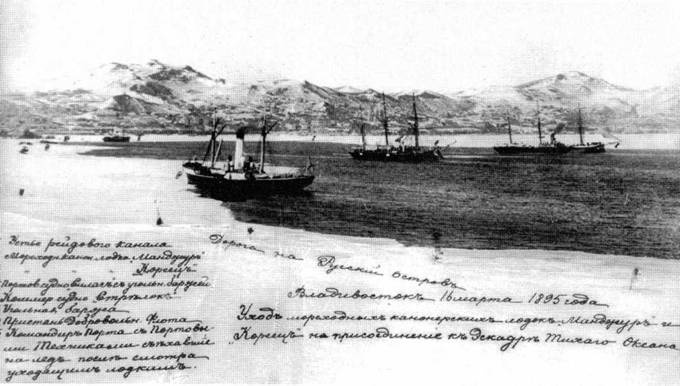 Устье рейдового канала
Мореходн. канон. лодк. Мандчуръ
Кореецъ
Портов. судно Силачъ съ угольн. баржей
Коммер. судно Стрѣлокъ
Угольная баржа
Пристань Добровольн. Флота
Командиръ Порта съ Портовы-
ми Техниками съѣхавшіе
на ледъ послѣ смотра
уходящимъ лодкамъ.
Дорога на Русскій островъ
Владивостокъ 16 марта 1895 года
Уходъ мореходныхъ канонерскихъ лодокъ Мандчуръ и
Кореецъ на присоединеніе къ Эскадрѣ Тихаго Океана